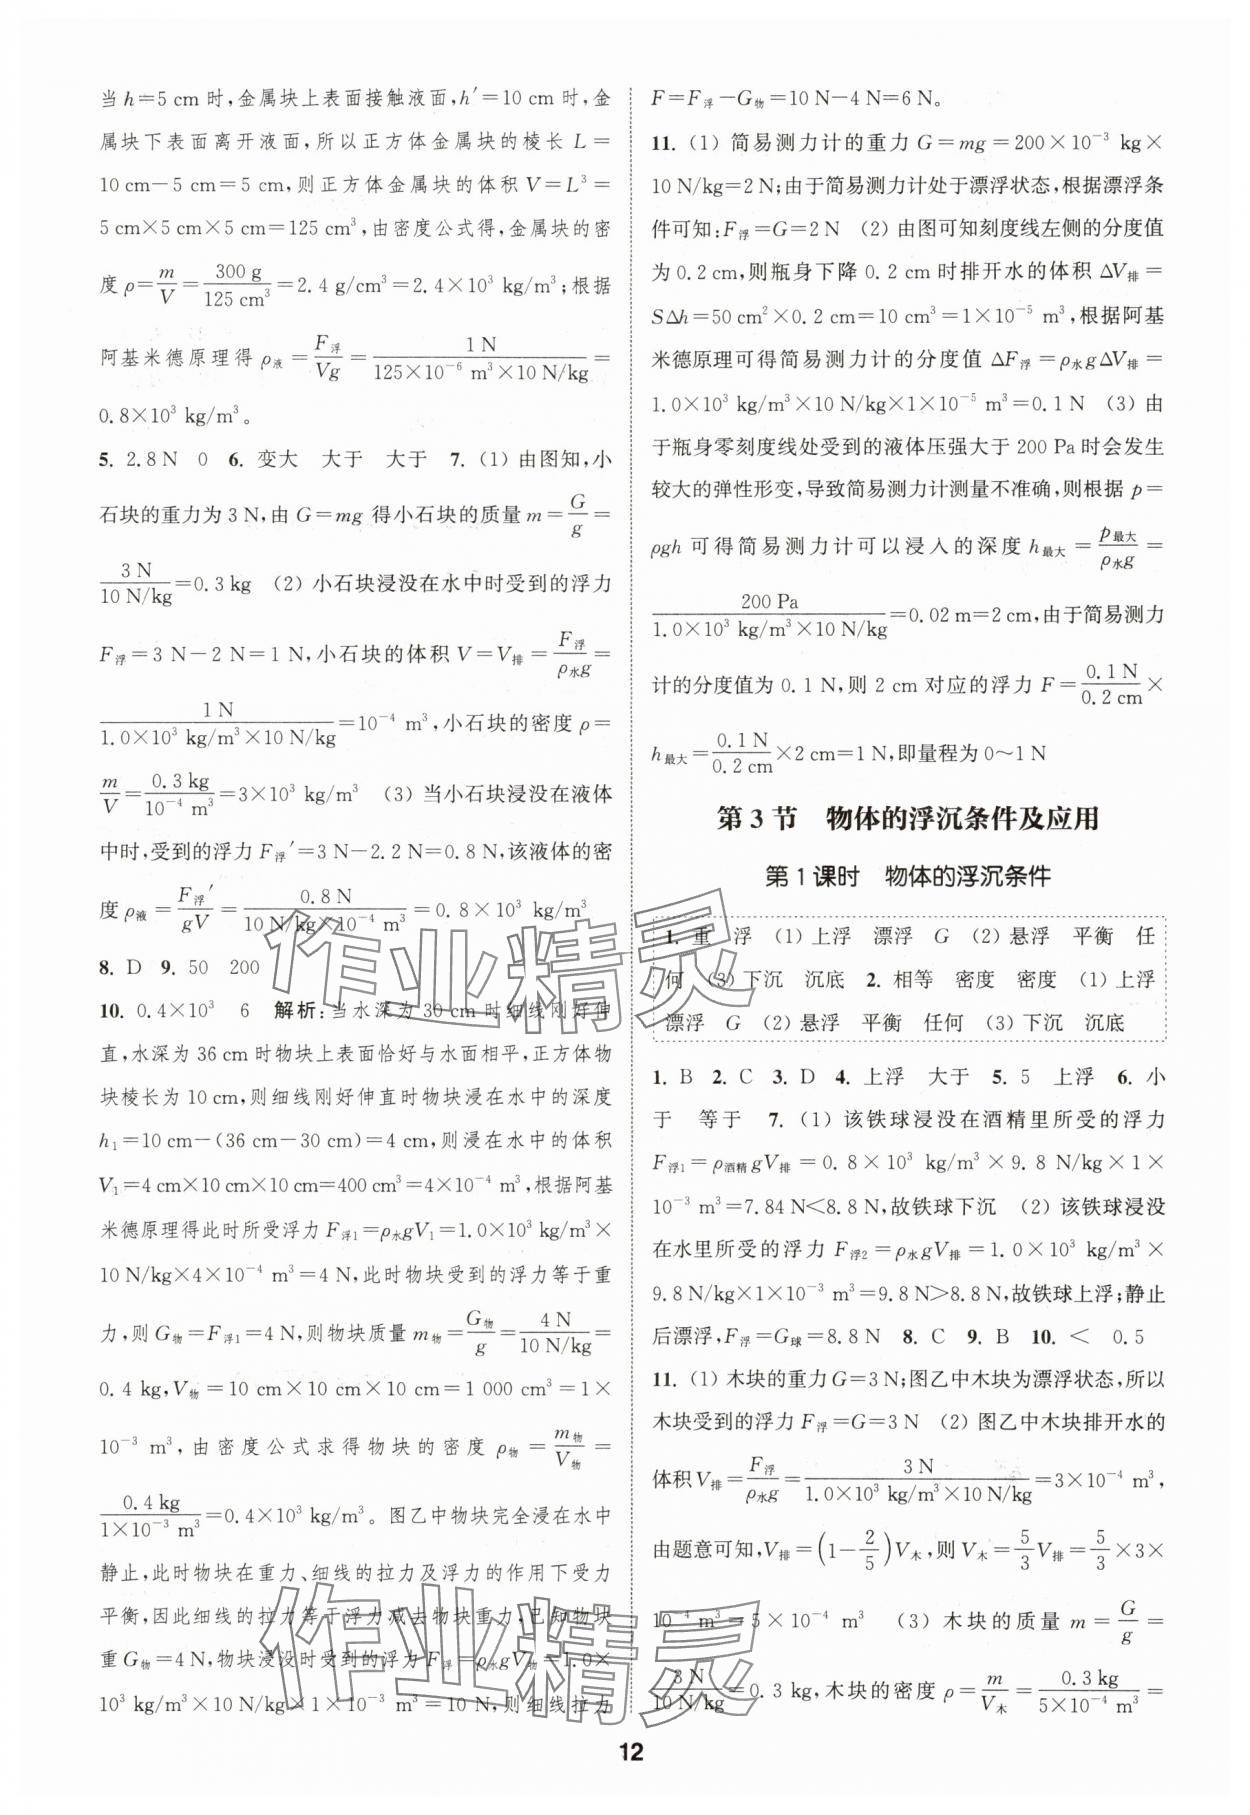 当 h=5 cm 时,金属块上表面接触液面,h′=10 cm 时,金
属块下表面离开液面,所以正方体金属块的棱长 L=
10 cm-5 cm=5 cm,则正方体金属块的体积 V=L³=
5 cm×5 cm×5 cm=125 cm³,由密度公式得,金属块的密
度 ρ=m/V=300 g/125 cm³=2.4 g/cm³=2.4×10³ kg/m³;根据
阿基米德原理得 ρ液=F浮/Vg=1 N/(125×10⁻⁶ m³×10 N/kg)=
0.8×10³ kg/m³。
5. 2.8 N 0 6. 变大 大于 大于 7. (1) 由图知,小
石块的重力为 3 N,由 G=mg 得小石块的质量 m=G/g=
3 N/(10 N/kg)=0.3 kg (2) 小石块浸没在水中时受到的浮力
F浮=3 N-2 N=1 N,小石块的体积 V=V排=F浮/(ρ水g)=
1 N/(1.0×10³ kg/m³×10 N/kg)=10⁻⁴ m³,小石块的密度 ρ=
m/V=0.3 kg/(10⁻⁴ m³)=3×10³ kg/m³ (3) 当小石块浸没在液体
中时,受到的浮力 F浮′=3 N-2.2 N=0.8 N,该液体的密
度 ρ液=F浮′/(gV)=0.8 N/(10 N/kg×10⁻⁴ m³)=0.8×10³ kg/m³
8. D 9. 50 200
10. 0.4×10³ 6 解析:当水深为 30 cm 时细线刚好伸
直,水深为 36 cm 时物块上表面恰好与水面相平,正方体物
块棱长为 10 cm,则细线刚好伸直时物块浸在水中的深度
h₁=10 cm-(36 cm-30 cm)=4 cm,则浸在水中的体积
V₁=4 cm×10 cm×10 cm=400 cm³=4×10⁻⁴ m³,根据阿基
米德原理得此时所受浮力 F浮1=ρ水gV₁=1.0×10³ kg/m³×
10 N/kg×4×10⁻⁴ m³=4 N,此时物块受到的浮力等于重
力,则 G物=F浮1=4 N,则物块质量 m物=G物/g=4 N/(10 N/kg)=
0.4 kg,V物=10 cm×10 cm×10 cm=1 000 cm³=1×
10⁻³ m³,由密度公式求得物块的密度 ρ物=m物/V物=
0.4 kg/(1×10⁻³ m³)=0.4×10³ kg/m³。图乙中物块完全浸在水中
静止,此时物块在重力、细线的拉力及浮力的作用下受力
平衡,因此细线的拉力等于浮力减去物块重力,已知物块
重 G物=4 N,物块浸没时受到的浮力 F浮=ρ水gV物=1.0×
10³ kg/m³×10 N/kg×1×10⁻³ m³=10 N,则细线拉力
F=F浮-G物=10 N-4 N=6 N。
11. (1) 简易测力计的重力 G=mg=200×10⁻³ kg×
10 N/kg=2 N;由于简易测力计处于漂浮状态,根据漂浮条
件可知:F浮=G=2 N (2) 由图可知刻度线左侧的分度值
为 0.2 cm,则瓶身下降 0.2 cm 时排开水的体积 ΔV排=
SΔh=50 cm²×0.2 cm=10 cm³=1×10⁻⁵ m³,根据阿基
米德原理可得简易测力计的分度值 ΔF浮=ρ水gΔV排=
1.0×10³ kg/m³×10 N/kg×1×10⁻⁵ m³=0.1 N (3) 由
于瓶身零刻度线处受到的液体压强大于 200 Pa 时会发生
较大的弹性形变,导致简易测力计测量不准确,则根据 p=
ρgh 可得简易测力计可以浸入的深度 h最大=p最大/(ρ水g)=
200 Pa/(1.0×10³ kg/m³×10 N/kg)=0.02 m=2 cm,由于简易测力
计的分度值为 0.1 N,则 2 cm 对应的浮力 F=0.1 N/0.2 cm×
h最大=0.1 N/0.2 cm×2 cm=1 N,即量程为 0~1 N
第 3 节 物体的浮沉条件及应用
第 1 课时 物体的浮沉条件
1. 重 浮 (1) 上浮 漂浮 G (2) 悬浮 平衡 任
何 (3) 下沉 沉底 2. 相等 密度 密度 (1) 上浮
漂浮 G (2) 悬浮 平衡 任何 (3) 下沉 沉底
1. B 2. C 3. D 4. 上浮 大于 5. 5 上浮 6. 小
于 等于 7. (1) 该铁球浸没在酒精里所受的浮力
F浮1=ρ酒精gV排=0.8×10³ kg/m³×9.8 N/kg×1×
10⁻³ m³=7.84 N<8.8 N,故铁球下沉 (2) 该铁球浸没
在水里所受的浮力 F浮2=ρ水gV排=1.0×10³ kg/m³×
9.8 N/kg×1×10⁻³ m³=9.8 N>8.8 N,故铁球上浮;静止
后漂浮,F浮=G球=8.8 N 8. C 9. B 10. < 0.5
11. (1) 木块的重力 G=3 N;图乙中木块为漂浮状态,所以
木块受到的浮力 F浮=G=3 N (2) 图乙中木块排开水的
体积 V排=F浮/(ρ水g)=3 N/(1.0×10³ kg/m³×10 N/kg)=3×10⁻⁴ m³,
由题意可知,V排=(1-2/5)V木,则 V木=5/3V排=5/3×3×
10⁻⁴ m³=5×10⁻⁴ m³ (3) 木块的质量 m=G/g=
3 N/(10 N/kg)=0.3 kg,木块的密度 ρ=m/V木=0.3 kg/(5×10⁻⁴ m³)=
12
作业精灵
作业精灵